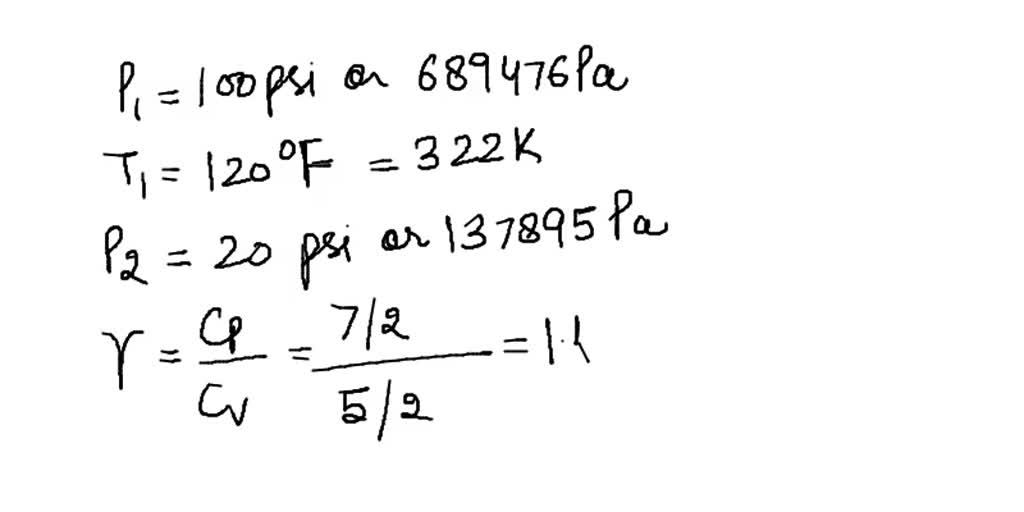 P₁ = 100 psi or 689476 Pa
T₁ = 120 °F = 322 K
P₂ = 20 psi or 137895 Pa
γ = Cp/Cv = 7/2 / 5/2 = 1.